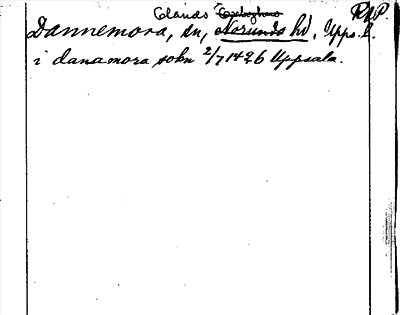 Olands RAP.
Dannemora, sn, Norunda hd, Upps. l.
i danamora sokn 2/7 1426 Uppsala.